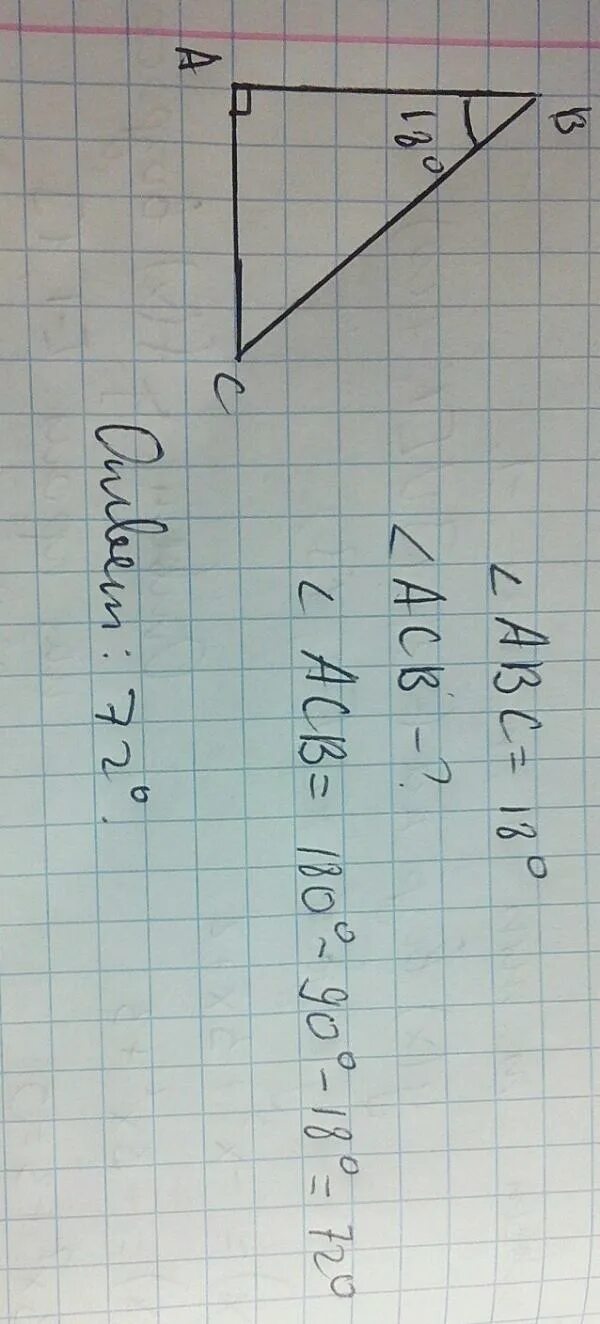 B
18°
A
C
∠ABC = 18°
∠ACB - ?
∠ACB = 180° - 90° - 18° = 72°
Ответ: 72°.